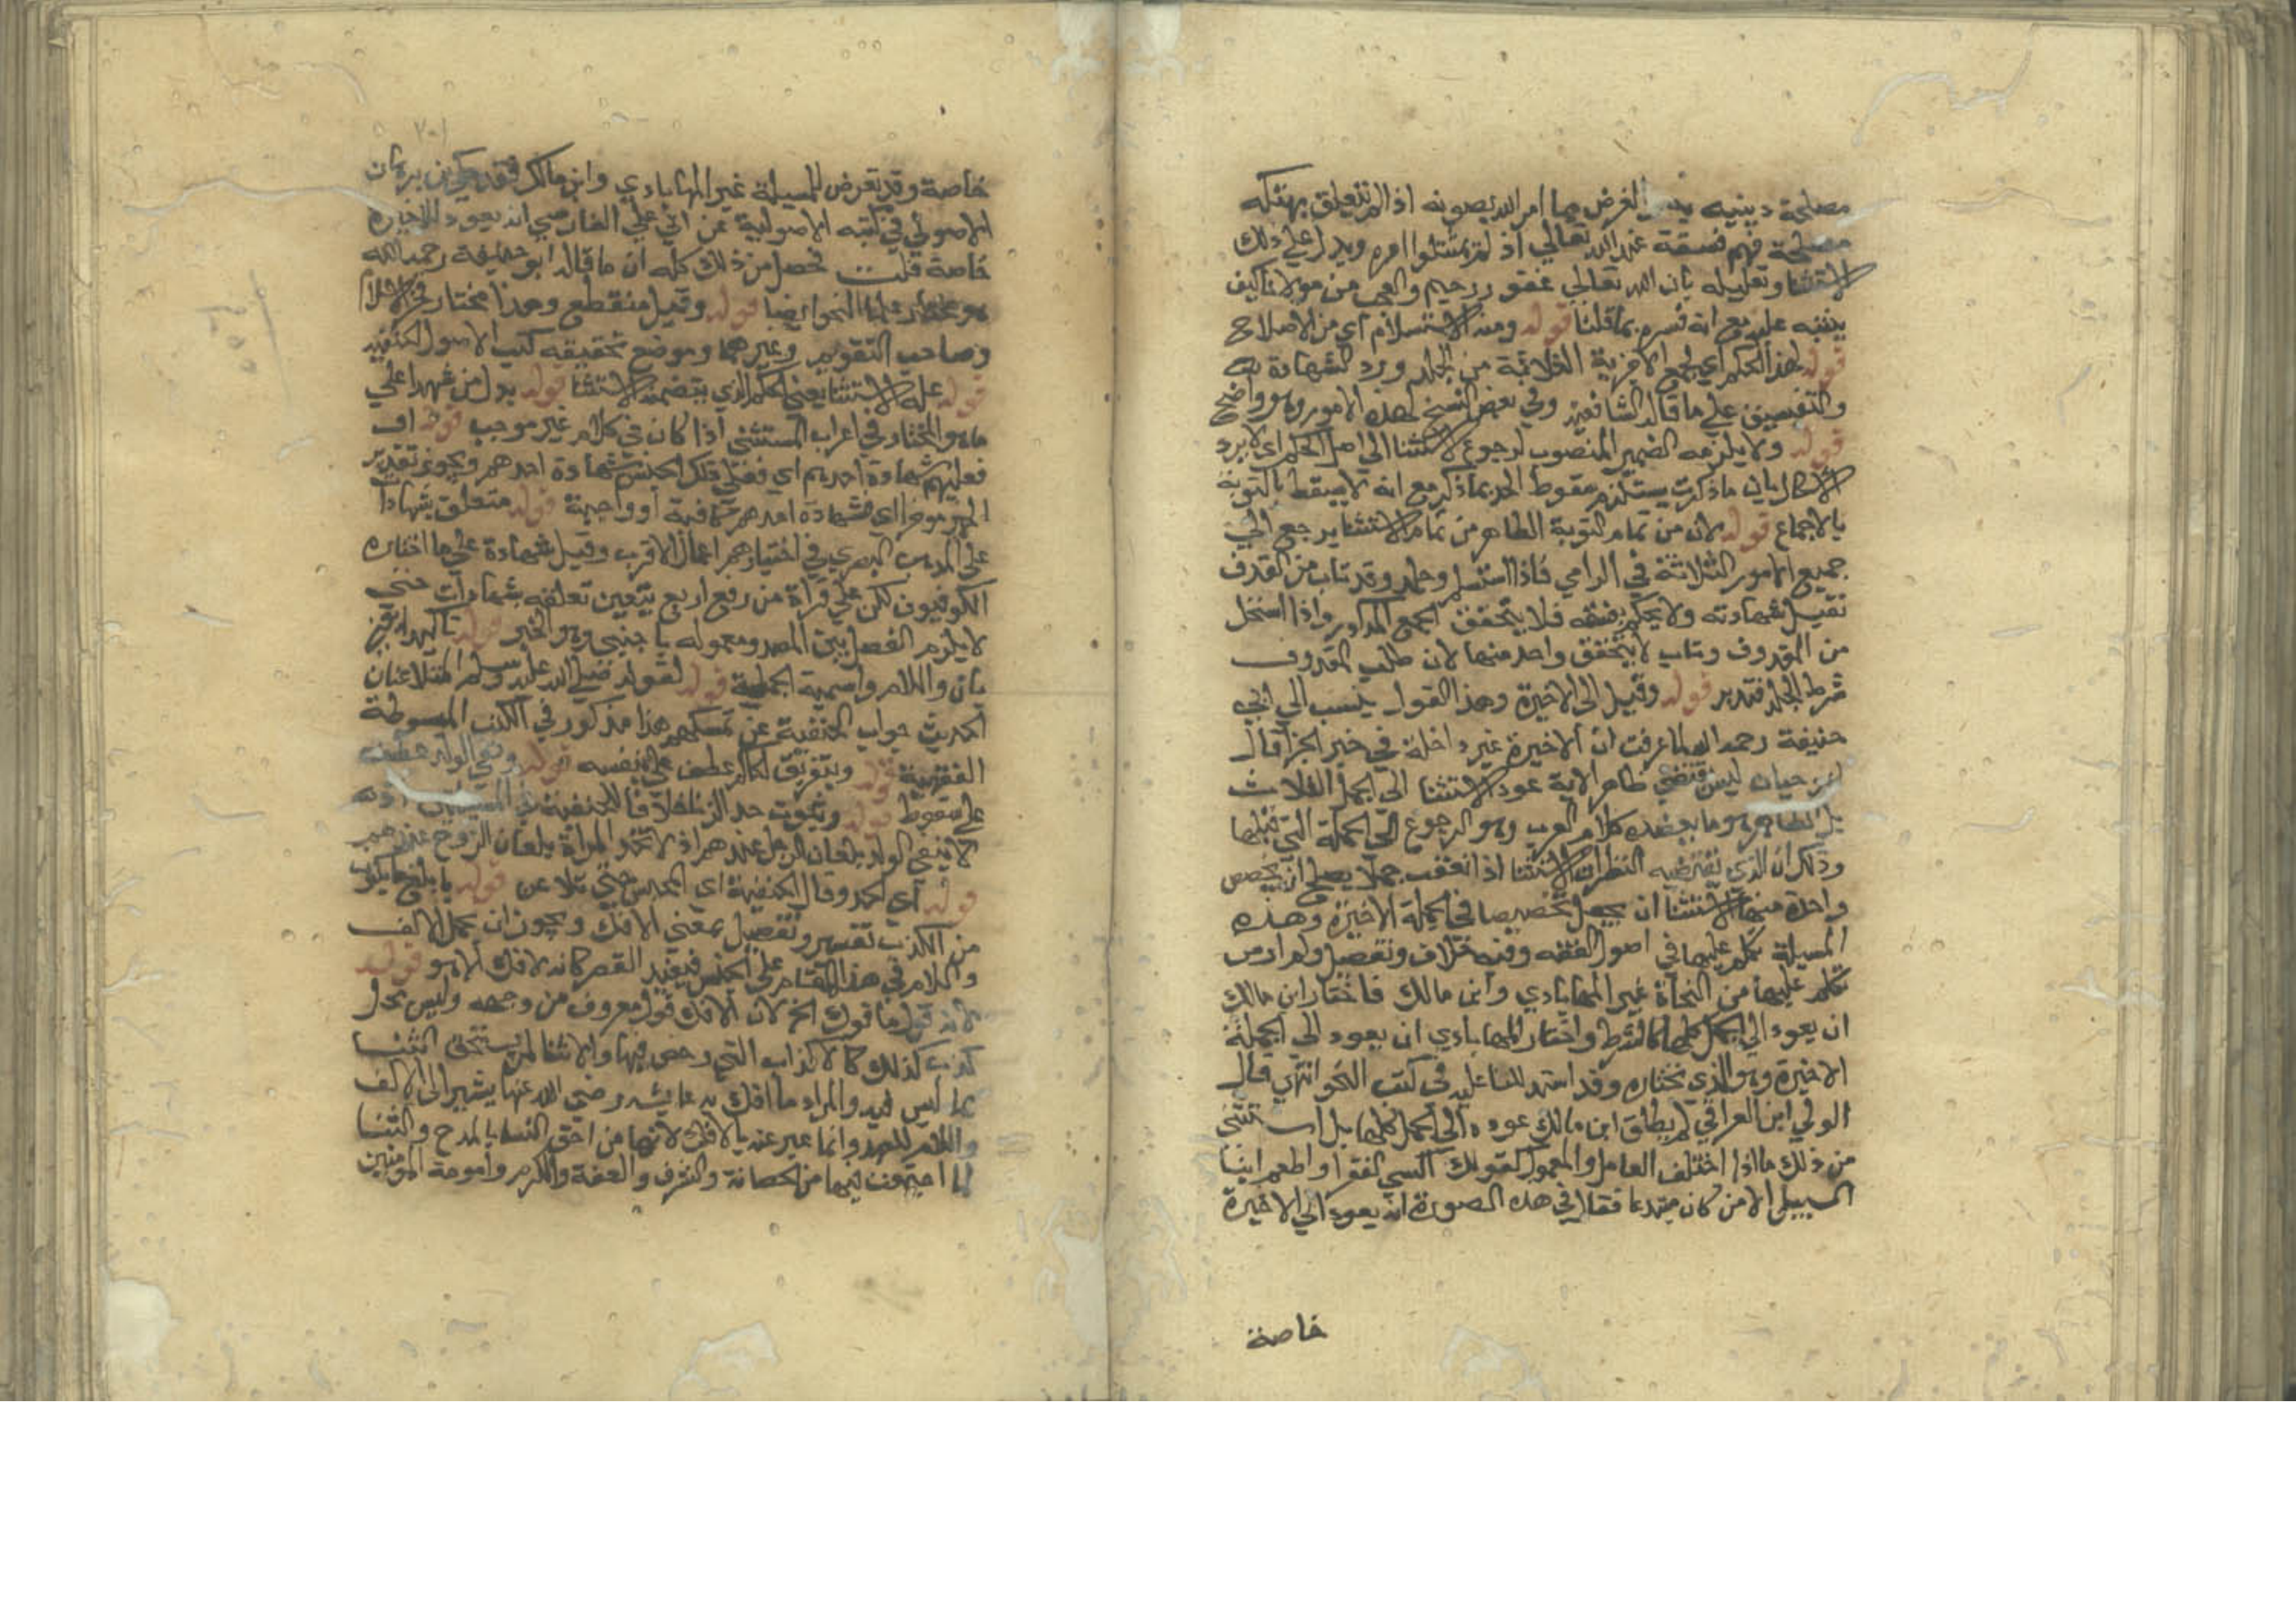 مصلحة دينية الغرض بها امر الله بصونه اذا لم تتعلق بهتكه
مصلحة فهم فسقة عند الله تعالى اذ لم يمتثلوا امره ويدل على ذلك
الاستثنا وتعليله بان الله تعالى غفور رحيم والعجب من مولانا كيف
ينبه عليه مع انه فسره بما قلنا قوله ومنه الاستسلام اي من الاصلاح
قوله لهذا الحكم اي لجميع الاجزية الثلاثة من الجلد ورد الشهادة به
والتفسيق على ما قال الشافعية وفي بعض النسخ لهذه الامور وهو واضح
قوله ولا يلزمه الضمير المنصوب لرجوع الاستثنا الى اصل الحكم اي لا يرد
الاشكال بان ما ذكرت يستلزم سقوط الحد بما ذكر مع انه لا يسقط بالتوبة
بالاجماع قوله لان من تمام التوبة الظاهر من تمام الاستثنا يرجع الى
جميع الامور الثلاثة في الرامي فاذا استسلم وجلد وقد تاب من القذف
تقبل شهادته ولا يحكم بفسقه فلا يتحقق الجمع المذكور واذا استحل
من المقذوف وتاب لا يتحقق واحد منها لان طلب المقذوف
شرط الجلد فتدبر قوله وقيل الى الاخيرة وهذا القول ينسب الى ابي
حنيفة رحمه الله لما عرفت ان الاخيرة غير داخلة في خبر الجزا قال
ابو حيان ليس يقتضي ظاهر الاية عود الاستثنا الى الجمل الثلاث
بل الظاهر هو ما يعضده كلام العرب وهو الرجوع الى الجملة التي تليها
وذكر ان الذي يقتضيه النظر ان الاستثنا اذا تعقب جملا يصلح ان يتخصص
واحدة منها بالاستثنا ان يجعل تخصيصا في الجملة الاخيرة وهذه
المسيلة تكلم عليها في اصول الفقه وفيه خلاف وتفصيل ولم ار من
تكلم عليها من النحاة غير المهاباذي وابن مالك فاختار ابن مالك
ان يعود الى الجمل كلها كالشرط واختار المهاباذي ان يعود الى الجملة
الاخيرة وهو الذي نختاره وقد استدللنا عليه في كتب النحو انتهى قال
الولي ابن العراقي لم يطلق ابن مالك عوده الى الجمل كلها بل استثنى
من ذلك ما اذا اختلف العامل والمعمول كقولك اكسي الفقرا واطعم ابنا
السبيل الا من كان مبتدعا فقال في هذه الصورة انه يعود الى الاخيرة
خاصة
٧٠١
خاصة وقد تعرض للمسيلة غير المهاباذي وابن مالك فقد حكى ابن برهان
الاصولي في كتبه الاصولية عن ابي علي الفارسي انه يعود للاخيرة
خاصة قلت تحصل من ذلك كله ان ما قاله ابو حنيفة رحمه الله
هو مختار علما النحو ايضا قوله وقيل منقطع وهذا مختار فخر الاسلام
وصاحب التقويم وغيرهما وموضع تحقيقه كتب الاصول الحنفية
قوله علة الاستثنا يعني الحكم الذي يتضمنه الاستثنا قوله بدل من شهدا على
ما هو المختار في اعراب المستثنى اذا كان في كلام غير موجب قوله او
فعليهم شهادة احدهم اي فعلى ذلك الجنس شهادة احدهم ويجوز تقدير
الخبر موخرا اي فشهادة احدهم كافية او واجبة قوله متعلق بشهادات
على المذهب البصري في اختيارهم اعمال الاقرب وقيل بشهادة على ما اختاره
الكوفيون لكن على قراة من رفع اربع يتعين تعلقه بشهادات حتى
لا يلزم الفصل بين المصدر ومعموله باجنبي وهو الخبر قوله تاكيدا
بان واللام واسمية الجملة قوله لقوله صلى الله عليه وسلم المتلاعنان
الحديث جواب الحنفية عن تمسكهم هذا مذكور في الكتب المبسوطة
الفقهية قوله وبتفريق الحاكم عطف على بنفسه قوله ونفي الولد عطف
على سقوط قوله وثبوت حد الزنا خلافا للحنفية
لا ينتفي الولد بلعان الرجل عندهم اذ لا تحد المراة بلعان الزوج عندهم
قوله اي الحد وقال الحنفية اي الحبس حتى تلاعن قوله بابلغ ما يكون
من الكذب تفسير وتفصيل بمعنى الافك ويجوز ان يحمل الالف
واللام في هذا المقام على الجنس فيفيد القصر كانه لا افك الا هو قوله
لانه قول ما فوك الخ لان الافك قول معروف من وجهه وليس كل
كذب كذلك كالاكذاب التي رخص فيها والاشنا لم يستحق الثنا
بما ليس فيه والمراد ما افك به عايشه رضي الله عنها يشير الى الالف
واللام للعهد وانما عبر عنه بالافك لانها من احق النسا بالمدح والثنا
لما اجتمعت فيها من الحصانة والشرف والعفة والكرم وامومة المومنين